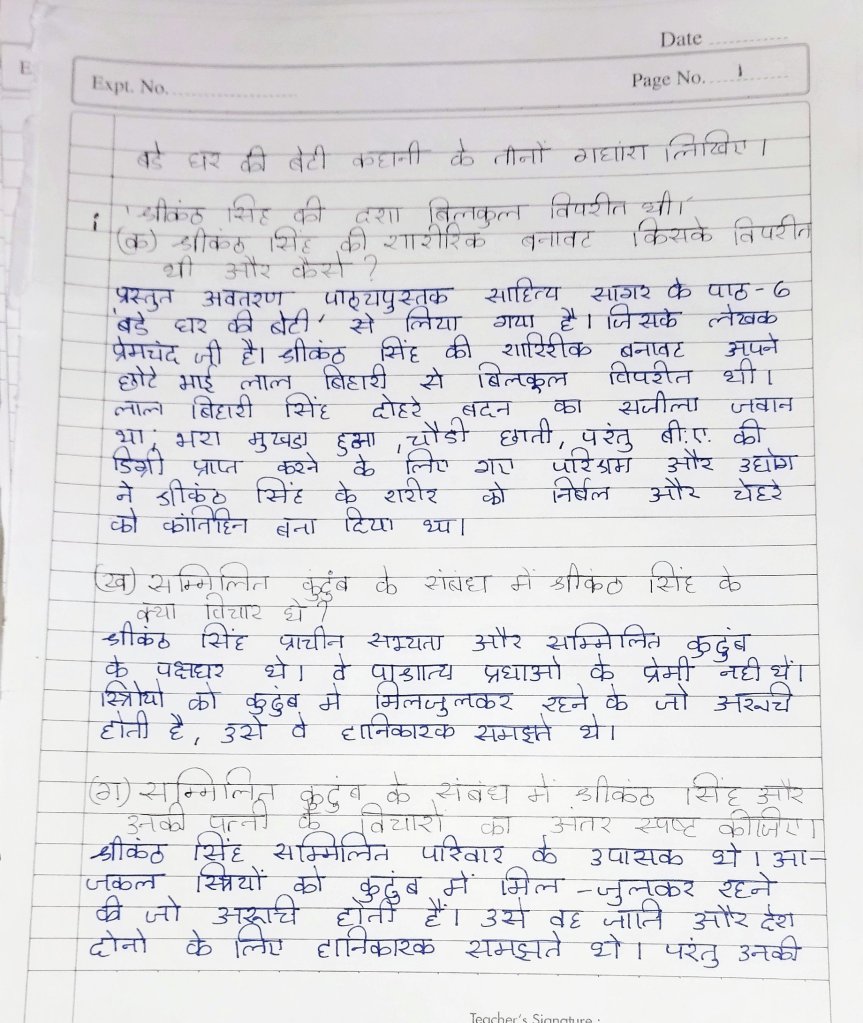 Date
Expt. No.
Page No. 1
बडे घर की बेटी कहानी के तीनों गद्यांश लिखिए।
i 'श्रीकंठ सिंह की दशा बिलकुल विपरीत थी।'
(क) श्रीकंठ सिंह की शारीरिक बनावट किसके विपरीत
थी और कैसे ?
प्रस्तुत अवतरण पाठ्यपुस्तक साहित्य सागर के पाठ-6
'बडे घर की बेटी' से लिया गया है। जिसके लेखक
प्रेमचंद जी है। श्रीकंठ सिंह की शारिरीक बनावट अपने
छोटे भाई लाल बिहारी से बिलकूल विपरीत थी।
लाल बिहारी सिंह दोहरे बदन का सजीला जवान
था, भरा मुखडा हुआ, चौडी छाती, परंतु बी.ए. की
डिग्री प्राप्त करने के लिए गए परिश्रम और उद्योग
ने श्रीकंठ सिंह के शरीर को निर्बल और चेहरे
को कांतिहिन बना दिया था।
(ख) सम्मिलित कुंदुंब के संबंध में श्रीकंठ सिंह के
क्या विचार थे ?
श्रीकंठ सिंह प्राचीन सभ्यता और सम्मिलित कुदुंब
के पक्षधर थे। वे पाश्चात्य प्रथाओ के प्रेमी नही थें।
स्त्रिीयो को कुदुंब मे मिलजुलकर रहने के जो अरूची
होती है, उसे वे हानिकारक समझते थे।
(ग) सम्मिलित कुदुंब के संबंध में श्रीकंठ सिंह और
उनकी पत्नी के विचारों का अंतर स्पष्ट कीजिए।
श्रीकंठ सिंह सम्मिलित परिवार के उपासक थे। आ-
जकल स्त्रियों को कुदुंब में मिल-जुलकर रहने
की जो अरूचि होती हैं। उसे वह जाति और देश
दोनो के लिए हानिकारक समझते थे। परंतु उनकी
Teacher's Signature :